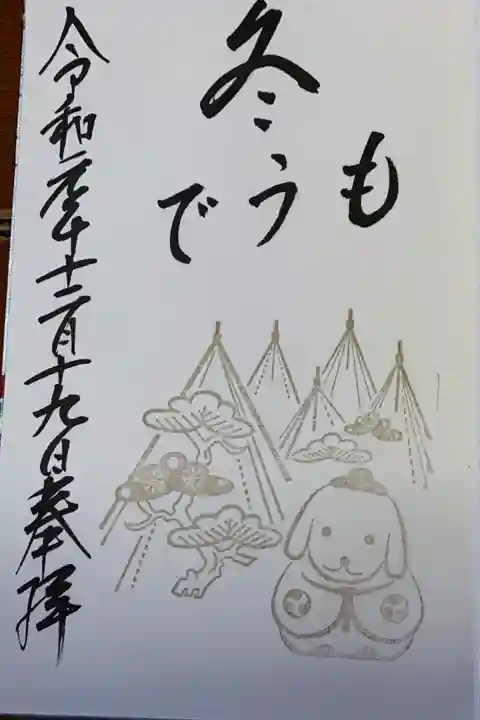 冬
もうで
令和元年十二月十九日奉拝